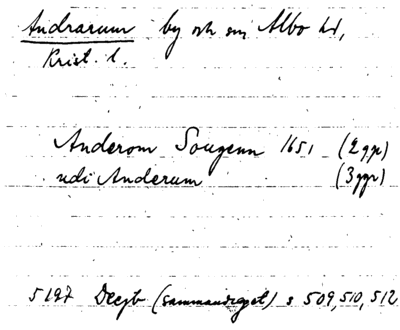 Andrarum by och sn, Albo hd,
Krist. l.
Anderom Sougenn 1651 (2 ggr)
udi Anderum (3 ggr)
5197 Decjb (sammandraget) s 509, 510, 512